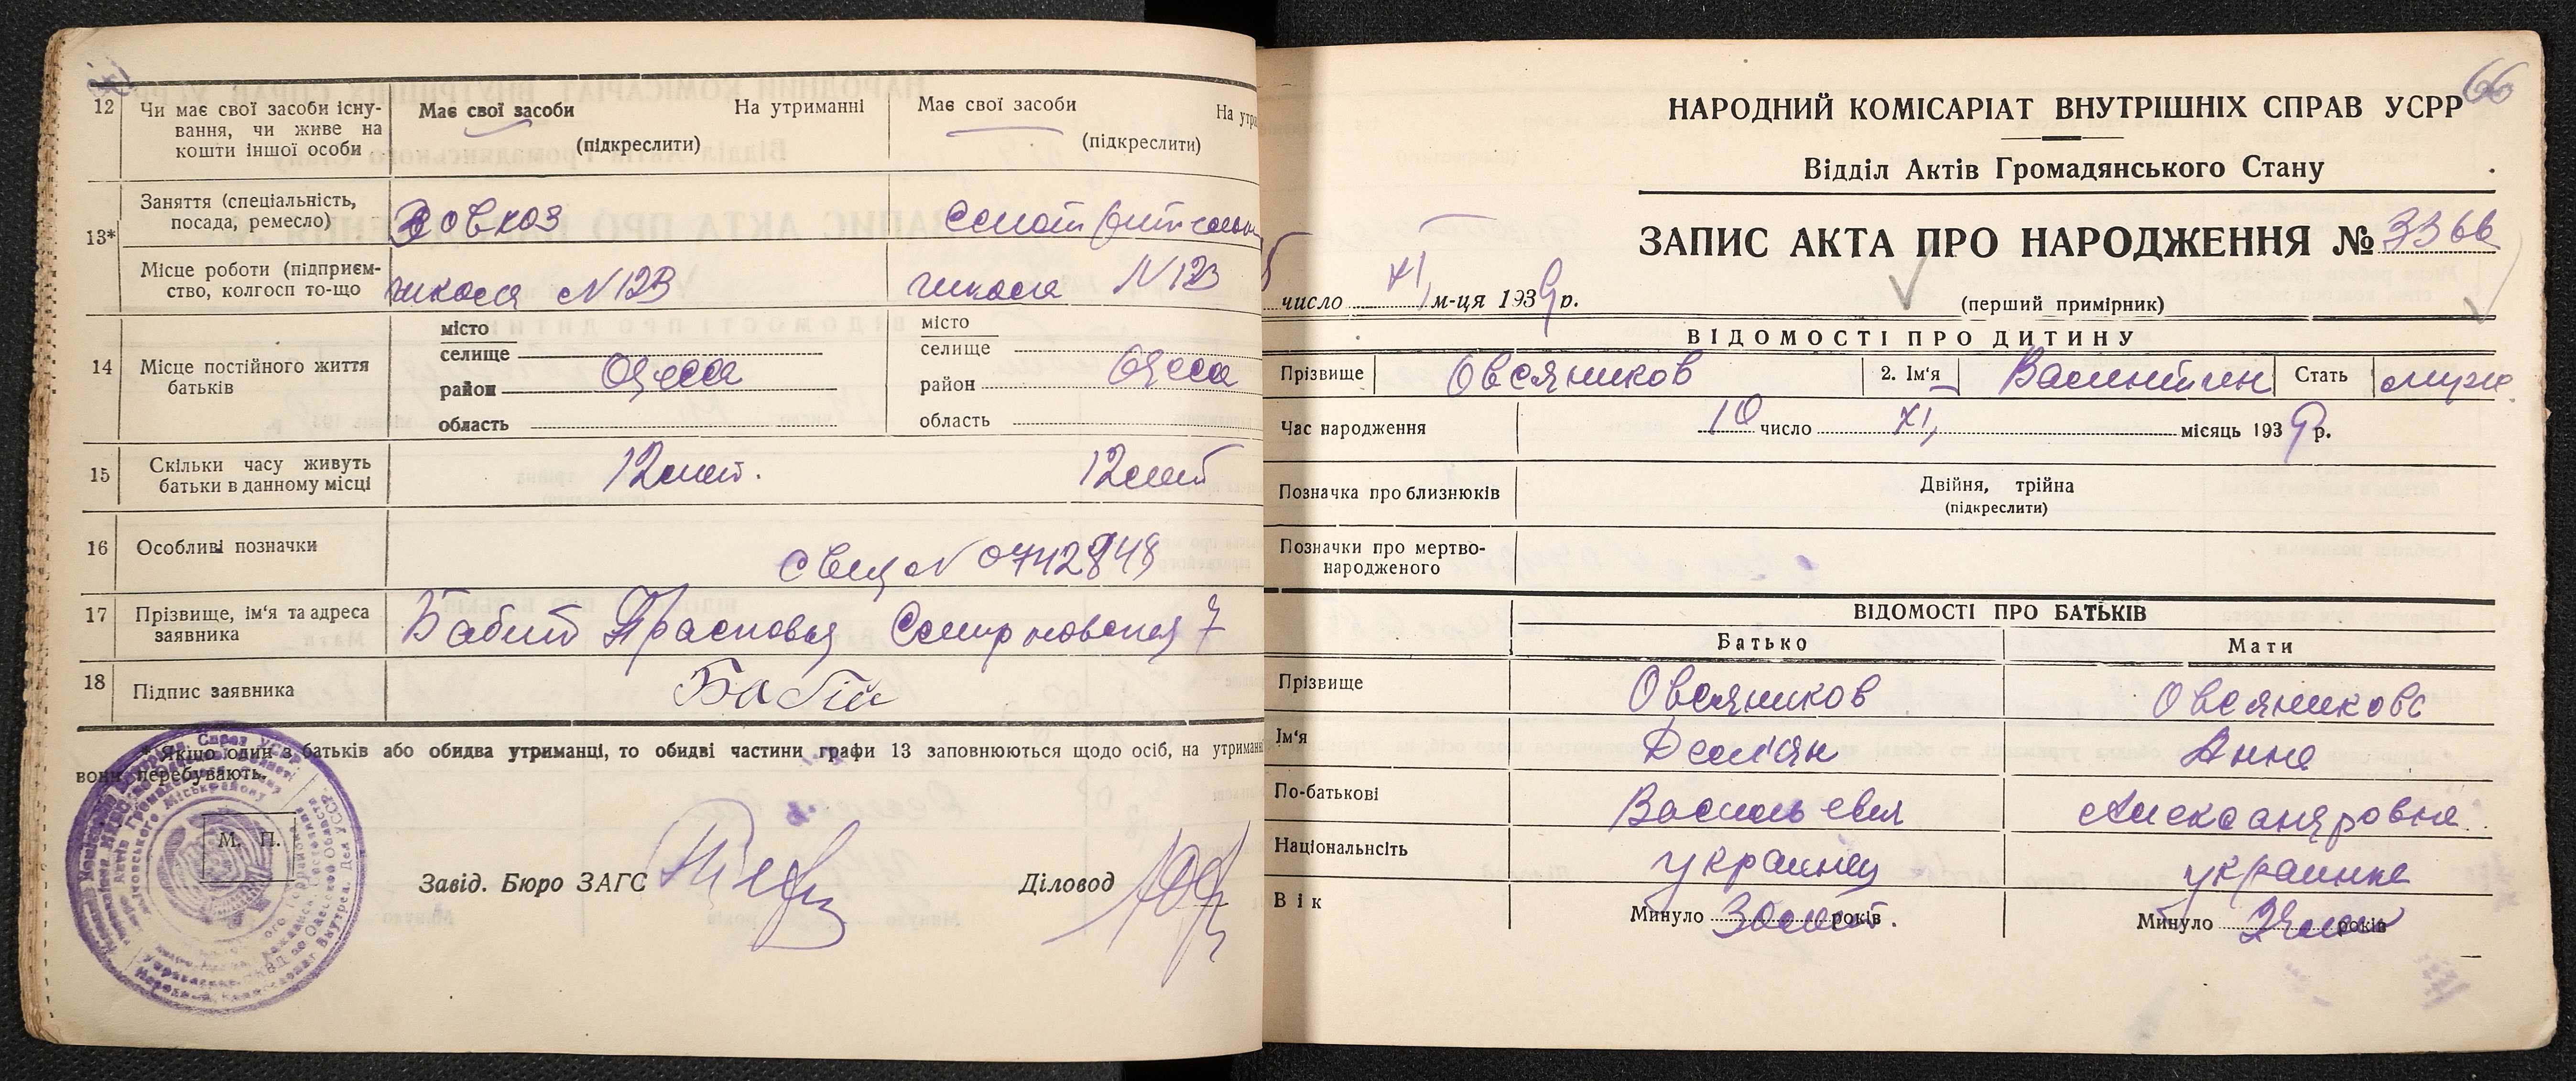 12 Чи має свої засоби існу-
вання, чи живе на
кошти іншої особи
Має свої засоби На утриманні
(підкреслити)
Має свої засоби На утри
(підкреслити)
13* Заняття (спеціальність,
посада, ремесло)
Завхоз
Місце роботи (підприєм-
ство, колгосп то-що
школа №123
школа №123
14 Місце постійного життя
батьків
місто
селище
район Одесса
область
місто
селище
район Одесса
область
15 Скільки часу живуть
батьки в данному місці
12 лет.
12 лет
16 Особливі позначки
свид №
17 Прізвище, ім'я та адреса
заявника
Бабит Прасковья 7
18 Підпис заявника
* Якщо один з батьків або обидва утриманці, то обидві частини графи 13 заповнюються щодо осіб, на утриманні
вони перебувають.
М. П.
Завід. Бюро ЗАГС
Діловод
66
НАРОДНИЙ КОМІСАРІАТ ВНУТРІШНІХ СПРАВ УСРР
Відділ Актів Громадянського Стану
ЗАПИС АКТА ПРО НАРОДЖЕННЯ № 3366
число XI, м-ця 1939 р.
(перший примірник)
ВІДОМОСТІ ПРО ДИТИНУ
Прізвище Овсяников 2. Ім'я Валентин Стать муж.
Час народження 10 число XI, місяць 1939 р.
Позначка про близнюків Двійня, трійна
(підкреслити)
Позначки про мертво-
народженого
ВІДОМОСТІ ПРО БАТЬКІВ
Батько Мати
Прізвище Овсяников Овсяникова
Ім'я Демьян Анна
По-батькові Васильевич Александровна
Національнсіть украинец украинка
Вік Минуло 30 лет. років Минуло років